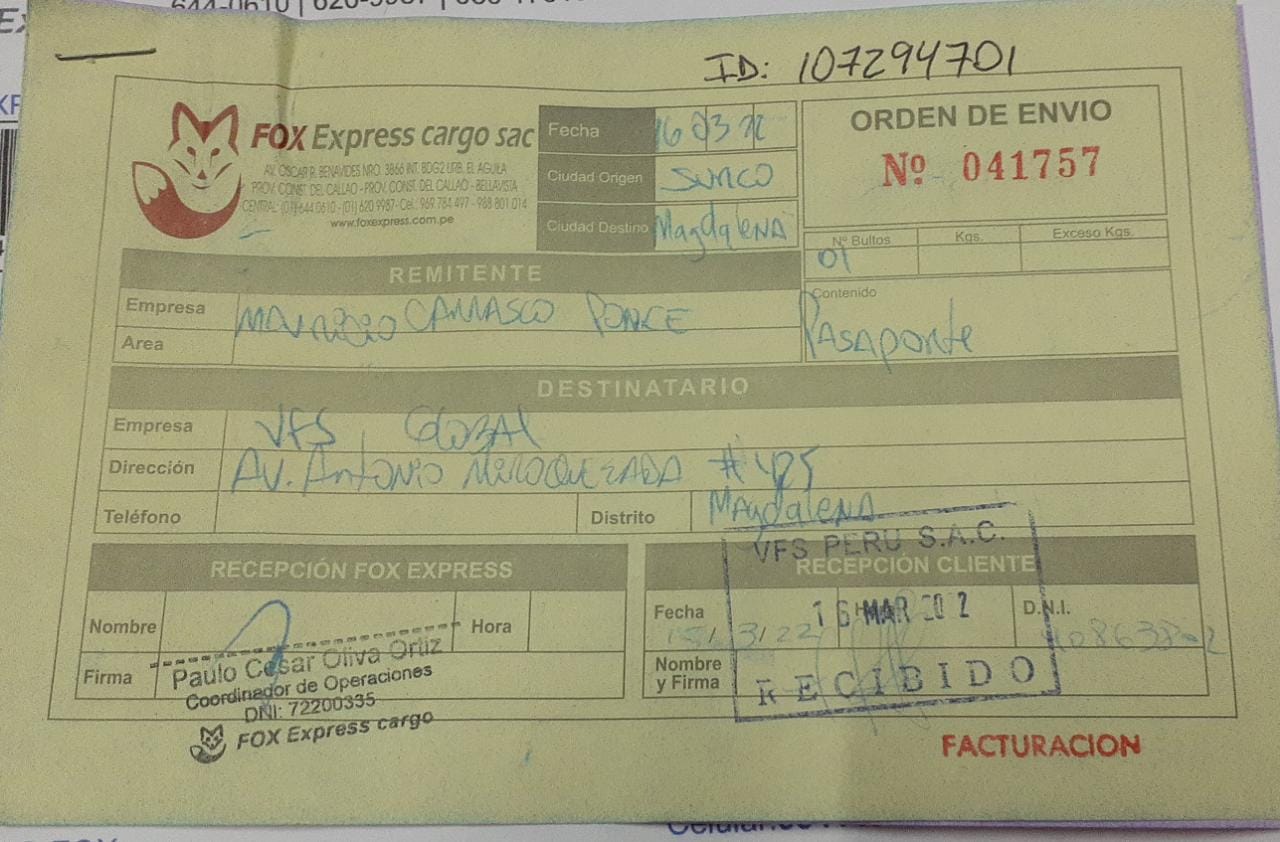 644-0610 | 620-9987 |
ID: 107294701
FOX Express cargo sac
AV. OSCAR R. BENAVIDES NRO. 3866 INT. BDG2 URB. EL AGUILA
PROV. CONST. DEL CALLAO - PROV. CONST. DEL CALLAO - BELLAVISTA
CENTRAL: (01) 644 0610 - (01) 620 9987- Cel.: 969 784 497 - 988 801 014
www.foxexpress.com.pe
Fecha 16 03 22
Ciudad Origen SURCO
Ciudad Destino Magdalena
ORDEN DE ENVIO
Nº 041757
Nº Bultos Kgs. Exceso Kgs.
01
Contenido
Pasaporte
REMITENTE
Empresa CARRASCO PONCE
Area
DESTINATARIO
Empresa VFS GLOBAL
Dirección AV. Antonio #425
Teléfono Distrito Magdalena
RECEPCIÓN FOX EXPRESS
Nombre Hora
Firma
Paulo Cesar Oliva Ortiz
Coordinador de Operaciones
DNI: 72200335
FOX Express cargo
RECEPCIÓN CLIENTE
VFS PERU S.A.C.
Fecha 16 MAR 202 D.N.I.
Nombre y Firma
RECIBIDO
FACTURACION